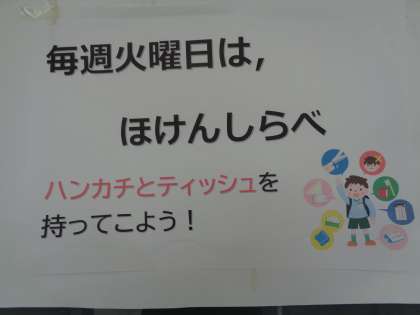 毎週火曜日は,
ほけんしらべ
ハンカチとティッシュを
持ってこよう！